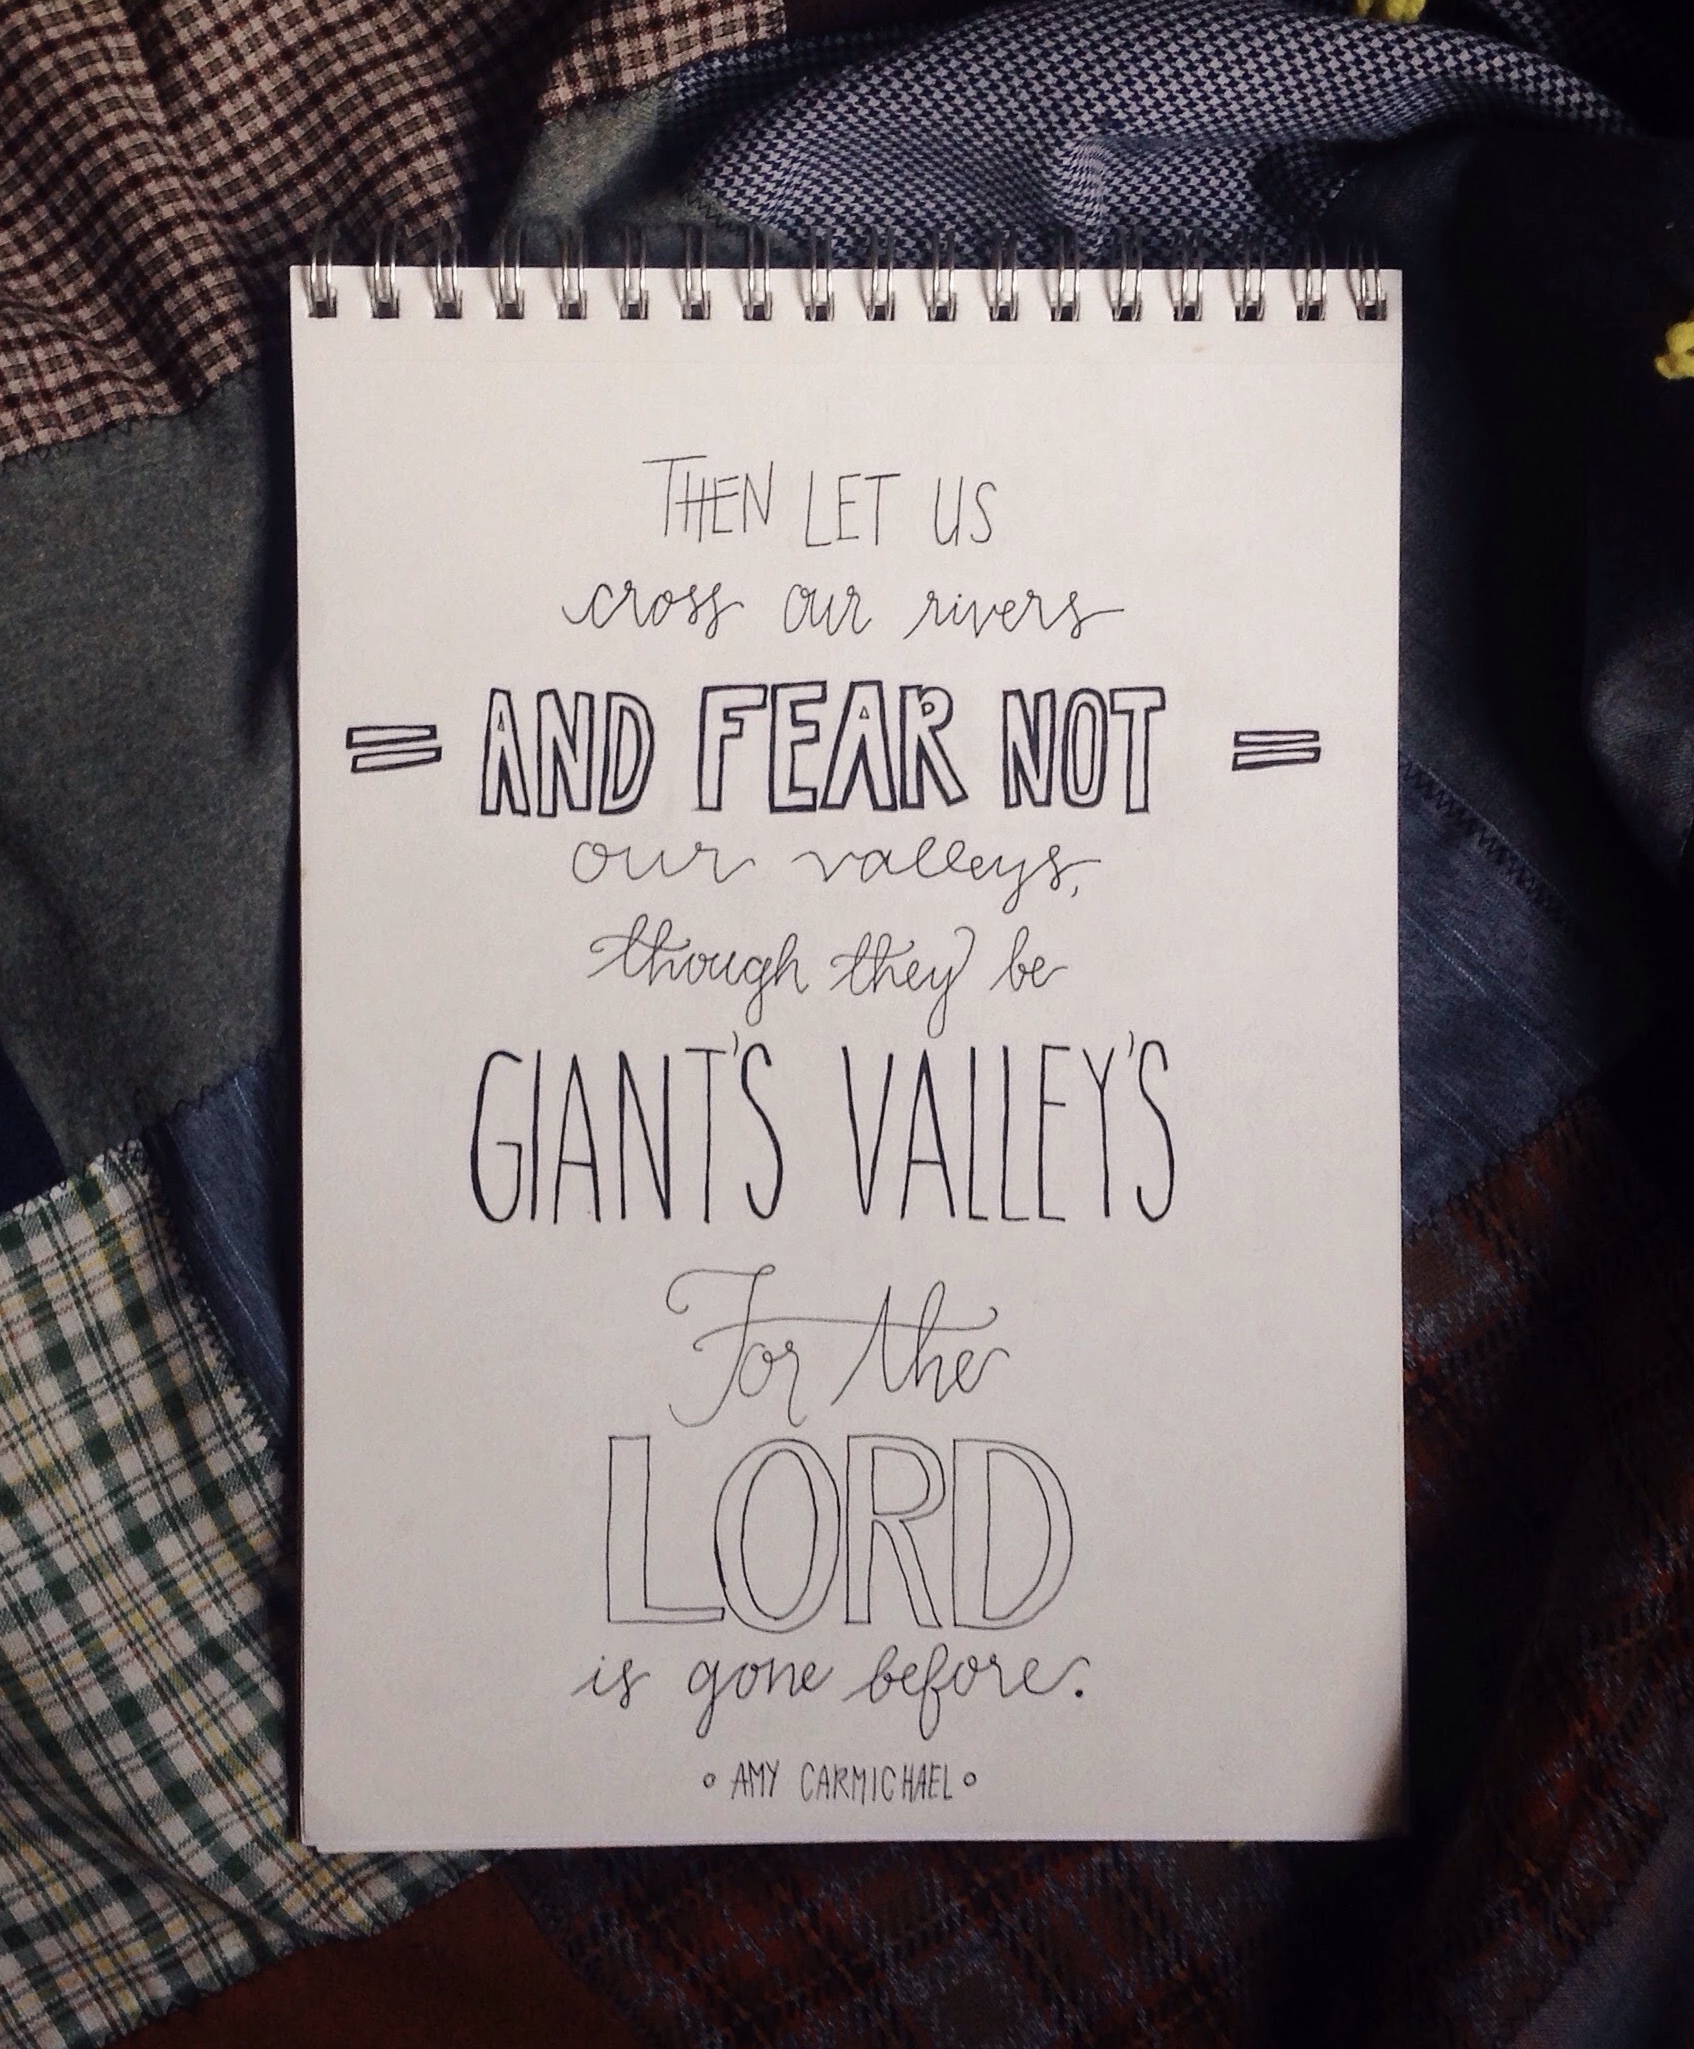 THEN LET US
cross our rivers
= AND FEAR NOT =
our valleys,
though they be
GIANT'S VALLEY'S
For the
LORD
is gone before.
° AMY CARMICHAEL °